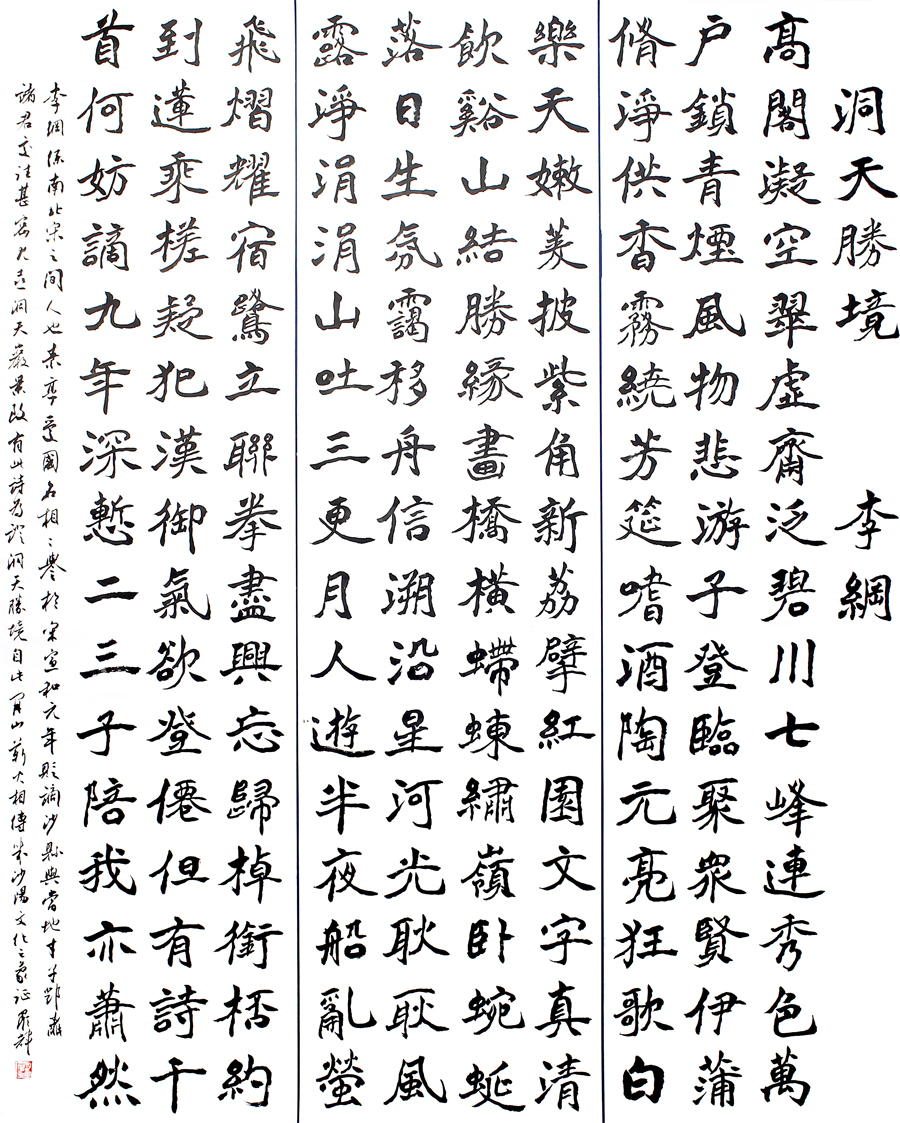 洞天勝境 李綱
高閣凝空翠虛齋泛碧川七峰連秀色萬
戶鎖青煙風物悲游子登臨聚眾賢伊蒲
脩淨供香霧繞芳筵嗜酒陶元亮狂歌白
樂天嫩菱披紫角新荔擘紅圓文字真清
飲谿山結勝緣畫橋橫螮蝀繡嶺臥蜿蜒
落日生氛靄移舟信溯沿星河光耿耿風
露淨涓涓山吐三更月人遊半夜船亂螢
飛熠耀宿鷺立聯拳盡興忘歸棹銜桮約
到蓮乘槎疑犯漢御氣欲登僊但有詩千
首何妨謫九年深慙二三子陪我亦蕭然
李綱係南北宋之間人也素享愛國名相之譽於宋宣和元年貶謫沙縣與當地才子鄧肅
諸君交往甚密尤喜洞天巖景致有此詩為證洞天勝境自此開山薪火相傳沙陽文化之象证